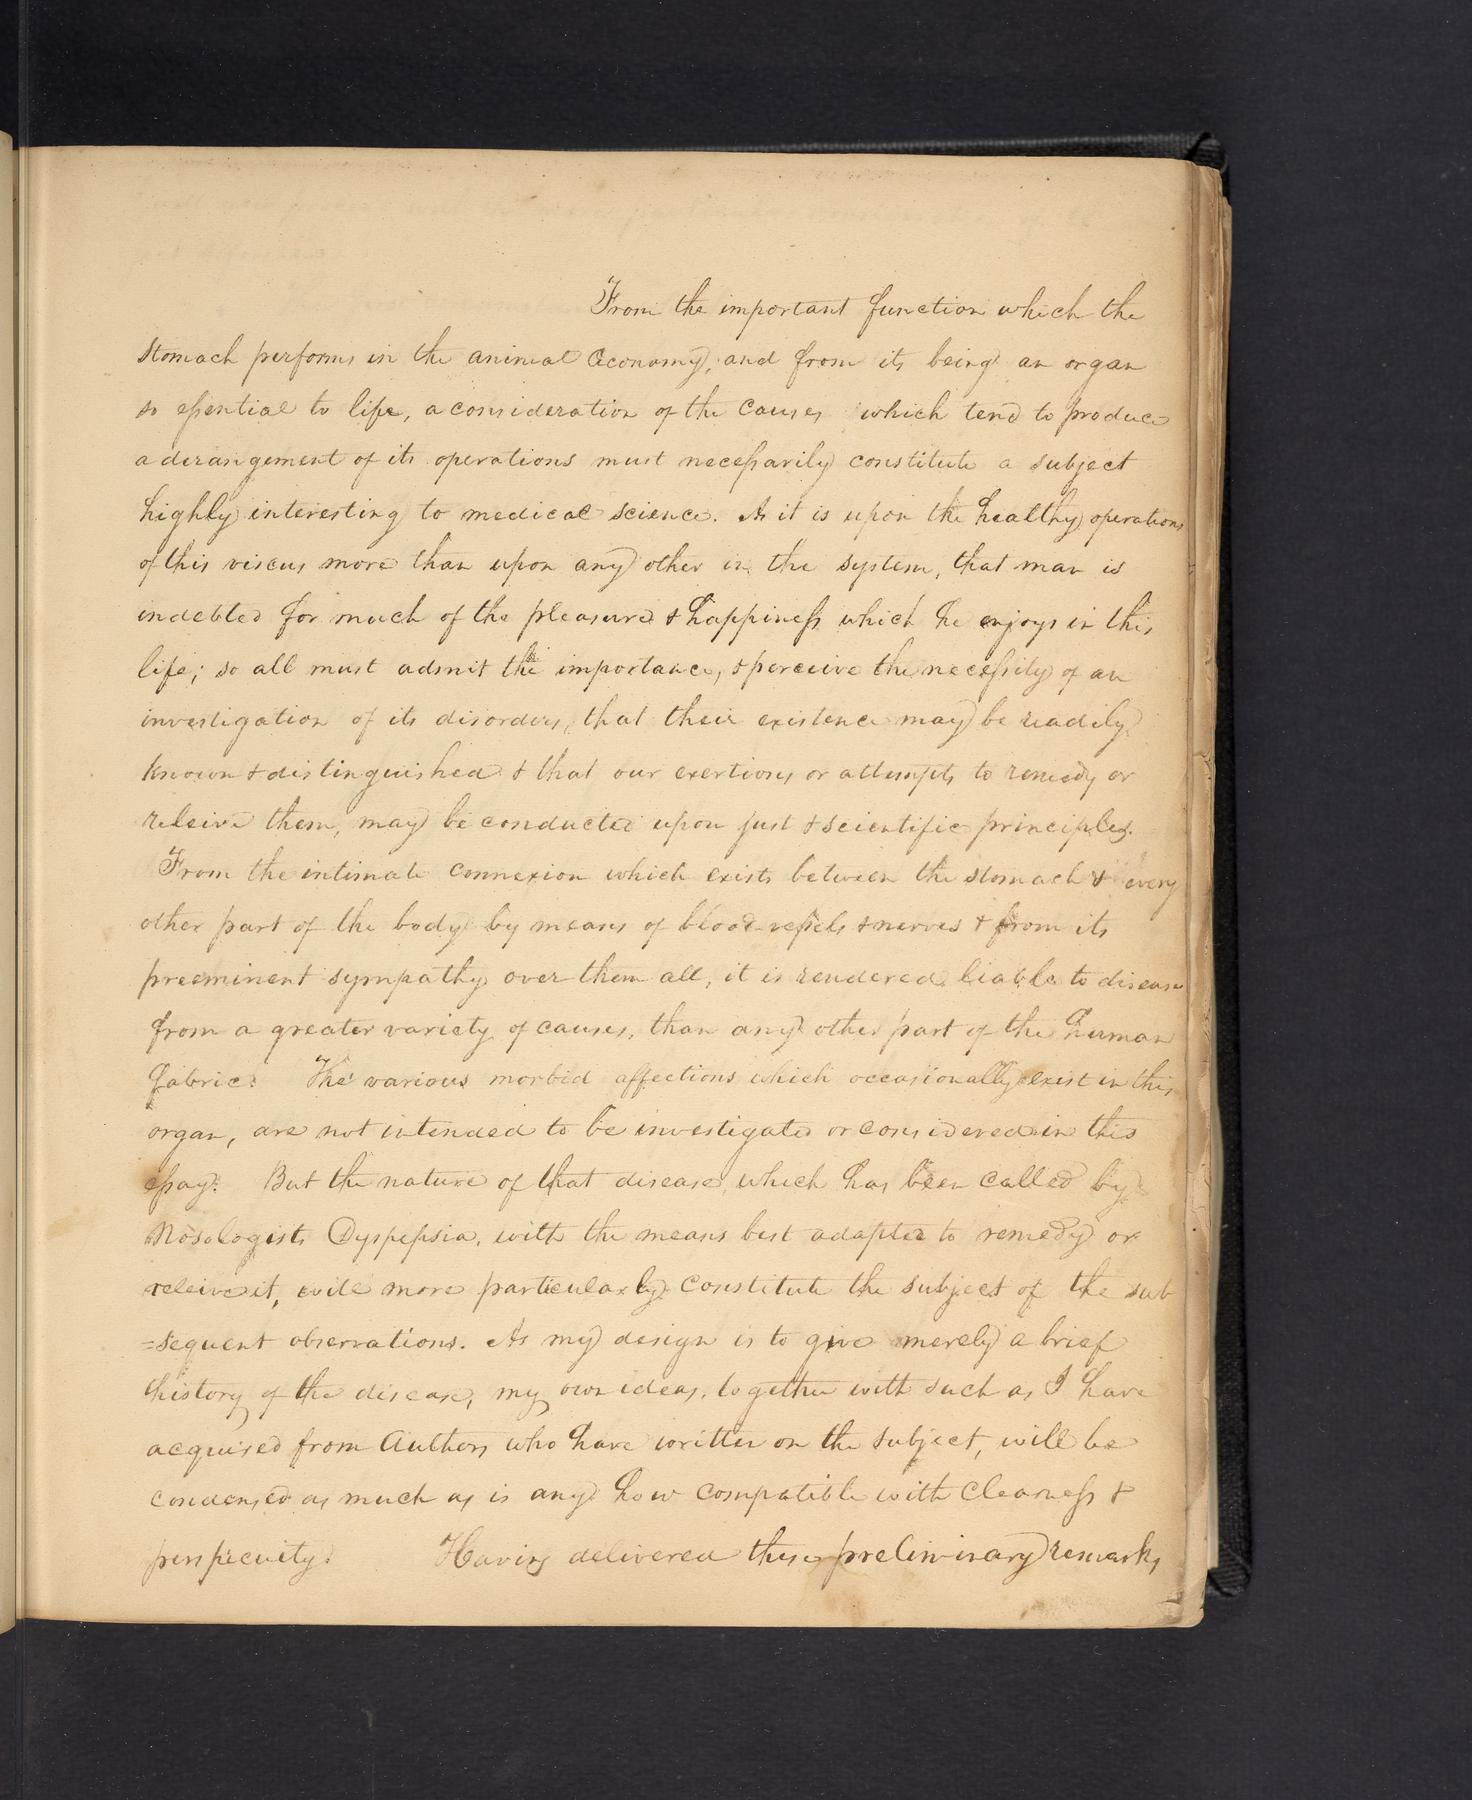 From the important function which the
stomach performs in the animal Œconomy, and from its being an organ
so eſsential to life, a consideration of the causes which tend to produce
a derangement of its operations must neceſsarily constitute a subject
highly interesting to medical science. As it is upon the healthy operations
of this viscus more than upon any other in the system, that man is
indebted for much of the pleasure & happineſs which he enjoys in this
life; so all must admit the importance, & perceive the neceſsity of an
investigation of its disorders, that their existence may be readily
known & distinguished & that our exertions or attempts to remedy or
releive them, may be conducted upon just & scientific principles.
From the intimate connexion which exists between the stomach & every
other part of the body by means of blood-veſsels & nerves & from its
preeminent sympathy over them all, it is rendered liable to disease
from a greater variety of causes, than any other part of the human
fabric. The various morbid affections which occasionally exist in this
organ, are not intended to be investigated or considered in this
eſsay. But the nature of that disease, which has been called by
Nosologists Dyspepsia, with the means best adapted to remedy or
releive it, will more particularly constitute the subject of the sub
=sequent observations. As my design is to give merely a brief
history of the disease, my own ideas, together with such as I have
acquired from Authors who have written on the subject, will be
condensed as much as is any how compatible with clearneſs &
perspicuity. Having delivered these preliminary remarks,